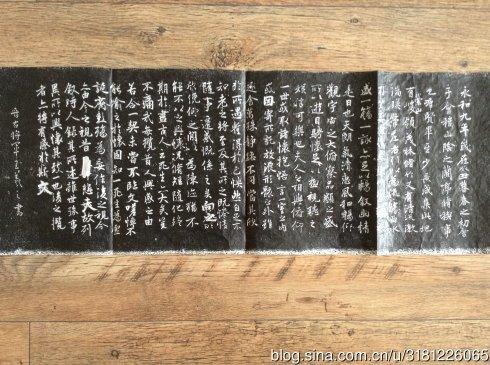 永和九年歲在癸丑暮春之初會
于會稽山陰之蘭亭脩禊事
也羣賢畢至少長咸集此地
盛一觴一詠亦足以暢敘幽情
是日也天朗氣清惠風和暢仰
觀宇宙之大俯察品類之盛
所以遊目騁懷足以極視聽之
娛信可樂也夫人之相與俯仰
一世或取諸懷抱悟言一室之內
或因寄所託放浪形骸之外雖
趣舍萬殊靜躁不同當其欣
於所遇蹔得於己怏然自足不
知老之將至及其所之既惓情
隨事遷感慨係之矣向之所
欣俛仰之間以為陳迹猶不
能不以之興懷況脩短隨化終
期於盡古人云死生亦大矣豈
不痛哉每攬昔人興感之由
若合一契未嘗不臨文嗟悼不
能喻之於懷固知一死生為虛
誕齊彭殤為妄作後之視今
亦由今之視昔悲夫故列
敘時人錄其所述雖世殊事
異所以興懷其致一也後之攬
者亦將有感於斯文
右將軍王羲之書
blog.sina.com.cn/u/3181226065